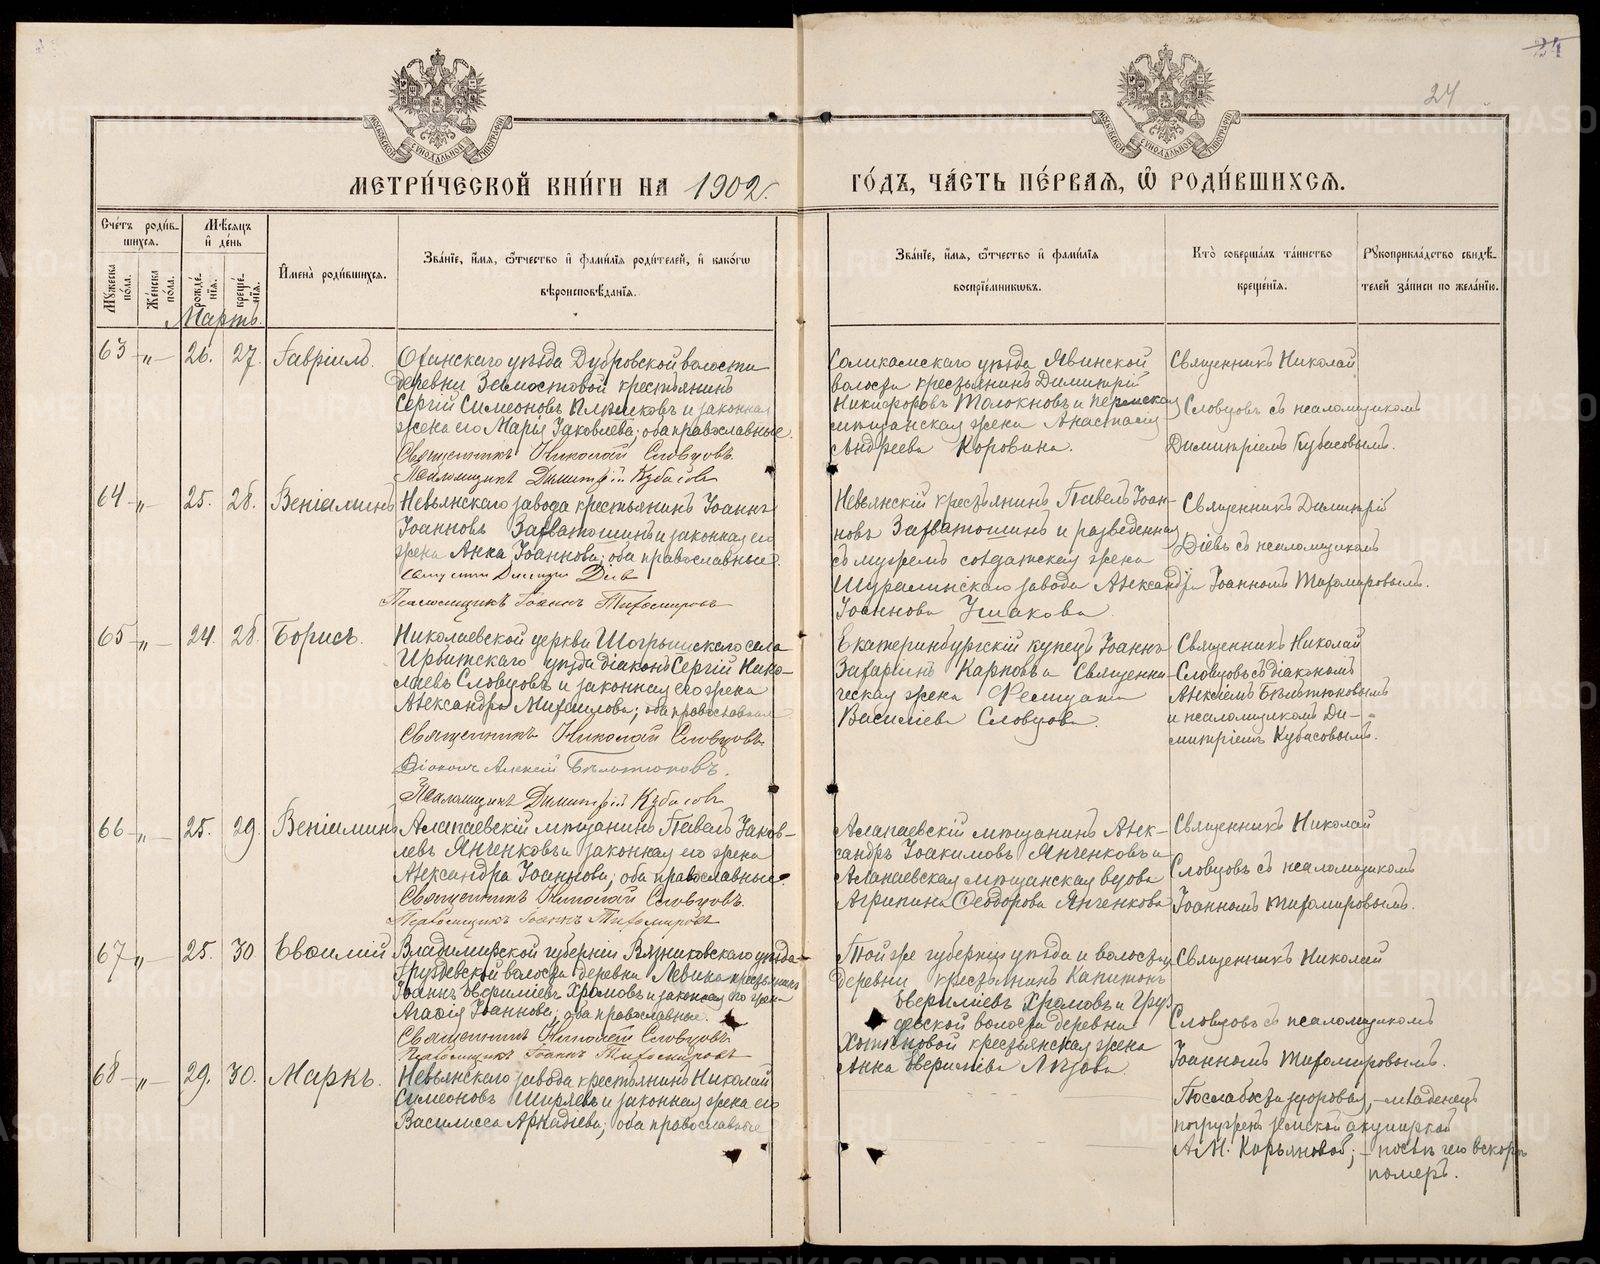 24
МЕТРИ́ЧЕСКОЙ КНИ́ГИ НА 1902 г.
ГО́ДЪ, ЧА́СТЬ ПЕ́РВАЯ, Ѡ҆ РОДИ́ВШИХСЯ.
МОСКОВСКОЙ СѴНОДАЛЬНОЙ ТИПОГРАФІИ
МОСКОВСКОЙ СѴНОДАЛЬНОЙ ТИПОГРАФІИ
Сче́тъ роди́в-
шихся.
Мѣ́сяцъ
и҆ де́нь
Мꙋ́жеска по́ла.
Же́нска по́ла.
рожде́-
нїя.
креще́-
нїя.
И҆мена̀ роди́вшихся.
Зва́нїе, и҆́мя, ѻ҆́тчество и҆ фами́лїя роди́телей, и҆ како́гѡ
вѣроисповѣ́данїя.
Зва́нїе, и҆́мя, ѻ҆́тчество и҆ фами́лїя
воспрїе́мникѡвъ.
Кто̀ соверша́лъ та́инство
креще́нїя.
Рꙋкоприкла́дство свидѣ́-
телей за́писи по жела́нїю.
Мартъ.
63 „ 26. 27. Гавріилъ.
Оханскаго уѣзда Дубровской волости
деревни Земостовой крестьянинъ
Сергій Симеоновъ и законная
жена его Марія Іаковлева; оба православные.
Священникъ Николай Словцовъ
Псаломщикъ Димитрій Кубасовъ
Соликамскаго уѣзда Явинской
волости крестьянинъ Димитрій
Никифоровъ Толокновъ и пермская
мѣщанская жена Анастасія
Андреева Коровина.
Священникъ Николай
Словцовъ съ псаломщикомъ
Димитріемъ Кубасовымъ.
64 „ 25. 28. Веніаминъ
Невьянскаго завода крестьянинъ Іоаннъ
Іоанновъ Захватошинъ и законная его
жена Анна Іоаннова; оба православные.
Священникъ Димитрій Діевъ
Псаломщикъ Іоаннъ Тихомировъ
Невьянскій крестьянинъ Павелъ Іоан-
новъ Захватошинъ и разведенная
съ мужемъ солдатская жена
Шуралинскаго завода Александра
Іоаннова Ушакова
Священникъ Димитрій
Діевъ съ псаломщикомъ
Іоанномъ Тихомировымъ.
65 „ 24. 28. Борисъ.
Николаевской церкви Шогрышскаго села
Ирбитскаго уѣзда діаконъ Сергій Нико-
лаевъ Словцовъ и законная его жена
Александра Михаилова; оба православные
Священникъ Николай Словцовъ
Діаконъ Алексій Бѣлотюковъ.
Псаломщикъ Димитрій Кубасовъ
Екатеринбургскій купецъ Іоаннъ
Захаріинъ Карповъ и Священни-
ческая жена
Василіева Словцова.
Священникъ Николай
Словцовъ съ діакономъ
Алексіемъ Бѣлотюковымъ
и псаломщикомъ Ди-
митріемъ Кубасовымъ.
66 „ 25. 29. Веніаминъ
Алапаевскій мѣщанинъ Павелъ Іаков-
левъ Янченковъ и законная его жена
Александра Іоаннова; оба православные.
Священникъ Николай Словцовъ.
Псаломщикъ Іоаннъ Тихомировъ
Алапаевскій мѣщанинъ Алек-
сандръ Іоакимовъ Янченковъ и
Алапаевская мѣщанская вдова
Агрипина Ѳеодорова Янченкова
Священникъ Николай
Словцовъ съ псаломщикомъ
Іоанномъ Тихомировымъ.
67 „ 25. 30 Евѳимій
Владимирской губерніи Вязниковскаго уѣзда
Груздевской волости деревни Левина крестьянинъ
Іоаннъ Хромовъ и законная его жена
Агаѳія Іоаннова; оба православные.
Священникъ Николай Словцовъ
Псаломщикъ Іоаннъ Тихомировъ
Той же губерніи уѣзда и волости
деревни крестьянинъ Капитонъ
Хромовъ и Груз-
девской волости деревни
крестьянская жена
Анна
Священникъ Николай
Словцовъ съ псаломщикомъ
Іоанномъ Тихомировымъ.
68 „ 29. 30. Маркъ.
Невьянскаго завода крестьянинъ Николай
Симеоновъ Ширяевъ и законная жена его
Василисса Аркадіева; оба православные
По слабости здоровья, младенецъ
погруженъ земской акушеркой
А. М. Карьяновой; – послѣ чего вскорѣ
померъ.
METRIKI.GASO-URAL.RU